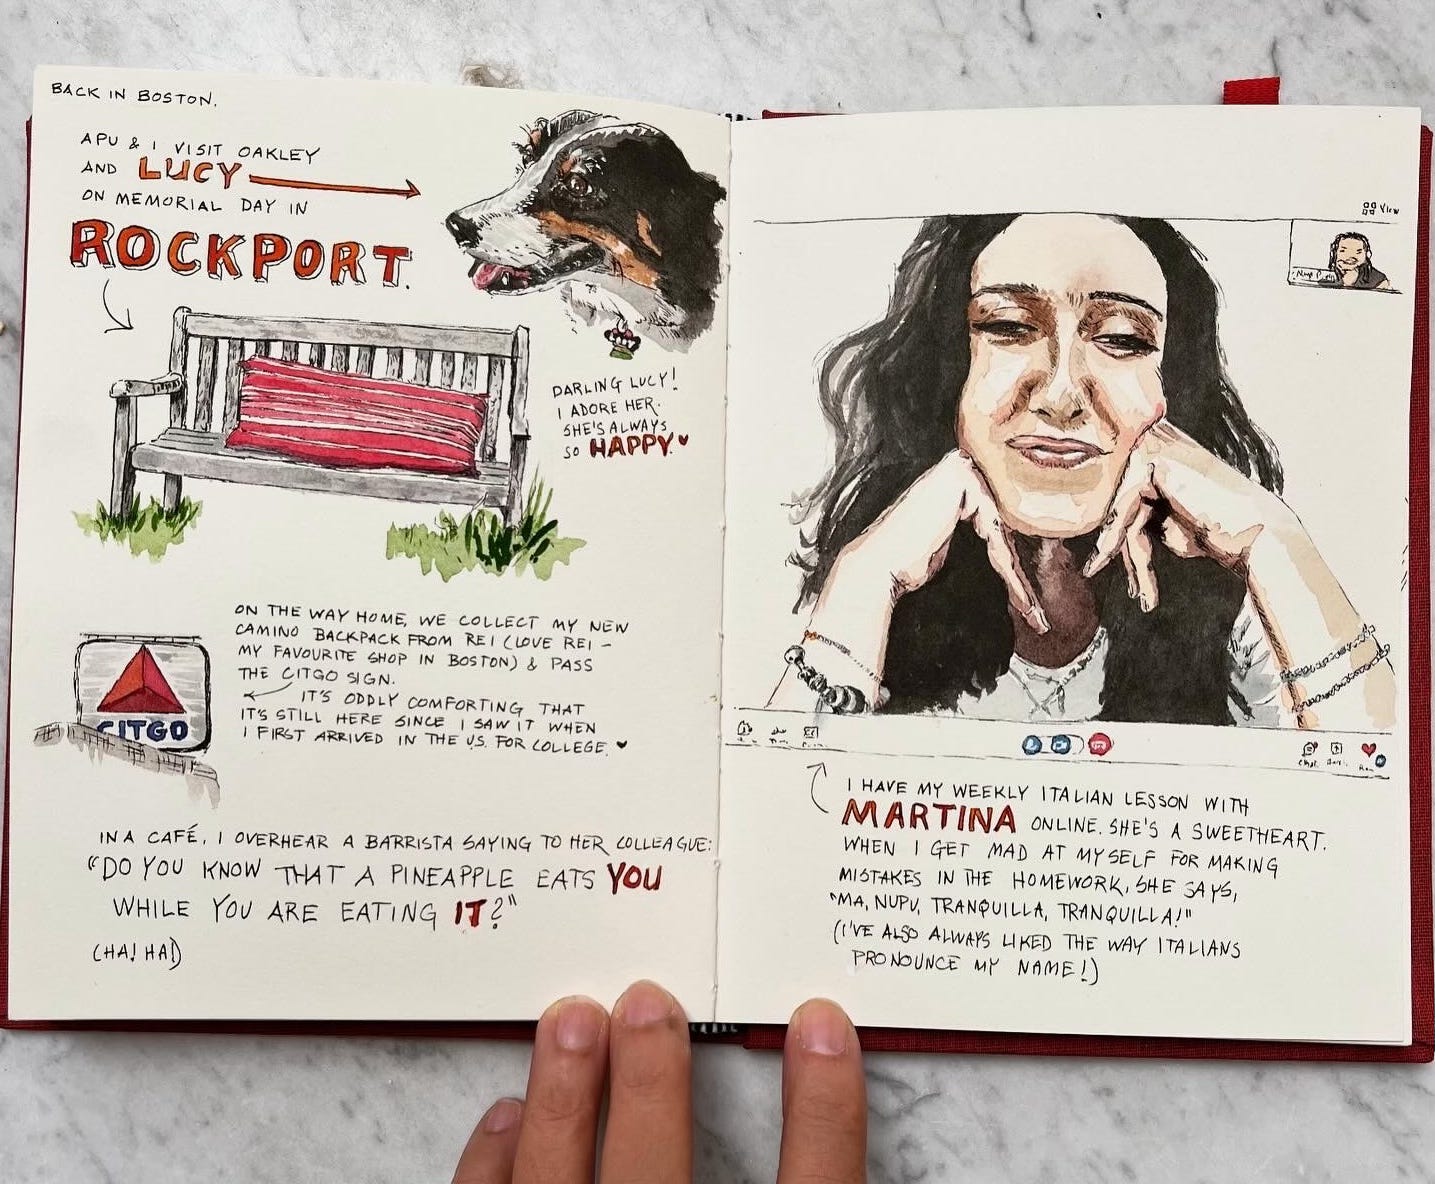 BACK IN BOSTON.
APU & I VISIT OAKLEY
AND LUCY
ON MEMORIAL DAY IN
ROCKPORT.
DARLING LUCY!
I ADORE HER.
SHE'S ALWAYS
SO HAPPY♥
ON THE WAY HOME, WE COLLECT MY NEW
CAMINO BACKPACK FROM REI (LOVE REI –
MY FAVOURITE SHOP IN BOSTON) & PASS
THE CITGO SIGN.
IT'S ODDLY COMFORTING THAT
IT'S STILL HERE SINCE I SAW IT WHEN
I FIRST ARRIVED IN THE U.S. FOR COLLEGE. ♥
CITGO
IN A CAFÉ, I OVERHEAR A BARRISTA SAYING TO HER COLLEAGUE:
"DO YOU KNOW THAT A PINEAPPLE EATS YOU
WHILE YOU ARE EATING IT?"
(HA! HA!)
VIEW
I HAVE MY WEEKLY ITALIAN LESSON WITH
MARTINA ONLINE. SHE'S A SWEETHEART.
WHEN I GET MAD AT MYSELF FOR MAKING
MISTAKES IN THE HOMEWORK, SHE SAYS,
"MA, NUPU, TRANQUILLA, TRANQUILLA!"
(I'VE ALSO ALWAYS LIKED THE WAY ITALIANS
PRONOUNCE MY NAME!)